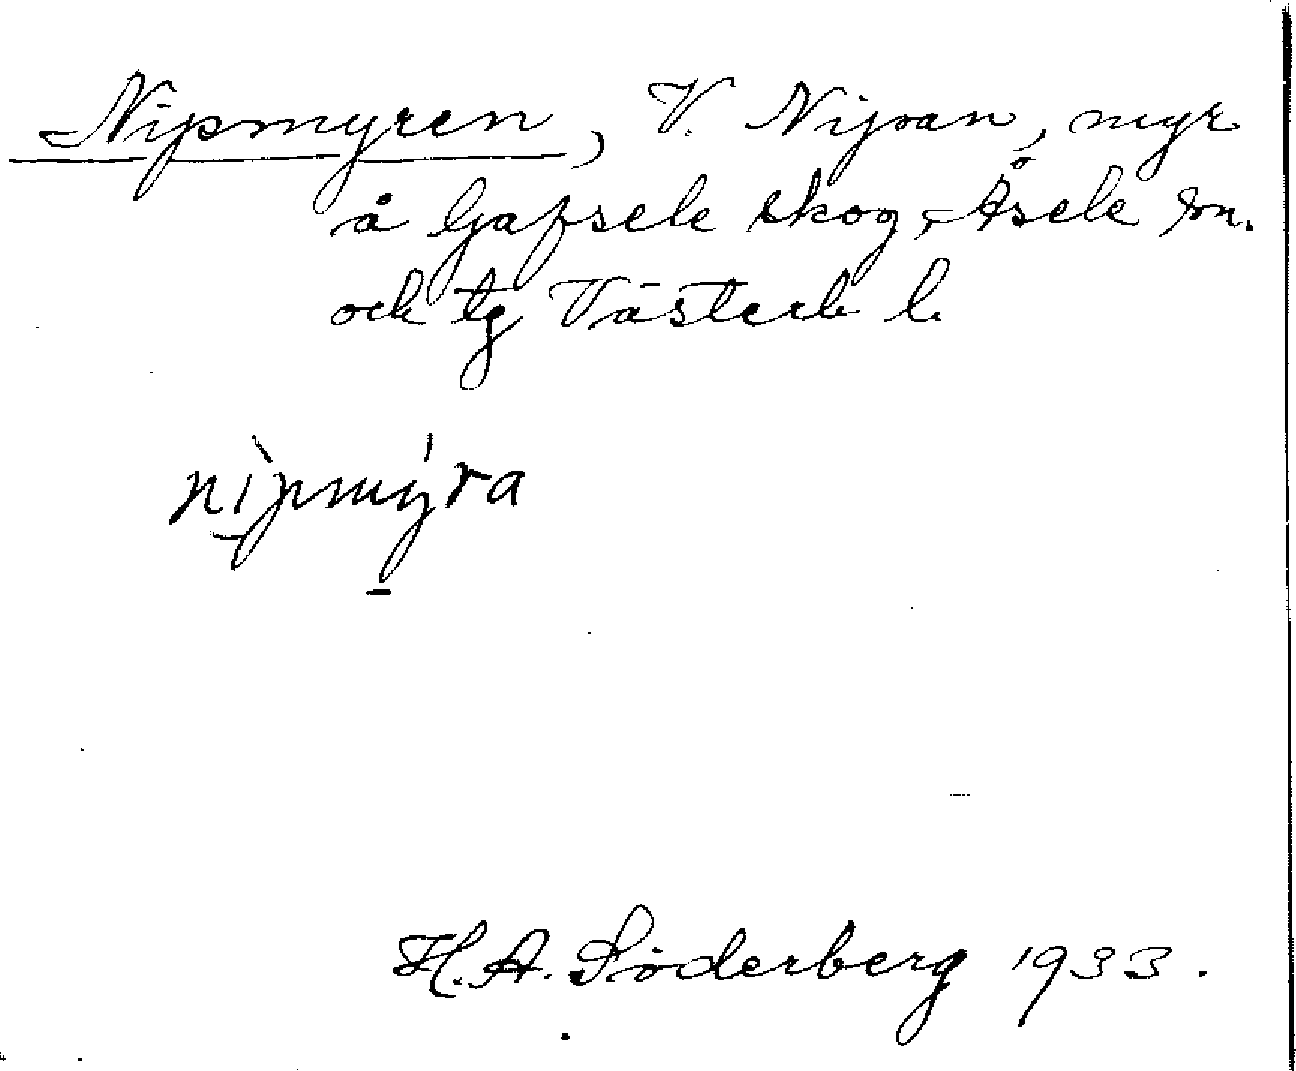 Nipmyren, V. Nipan, myr
å Gafsele skog, Åsele sn.
och tg Västerb l.
nìpmýra
H. A. Söderberg 1933.